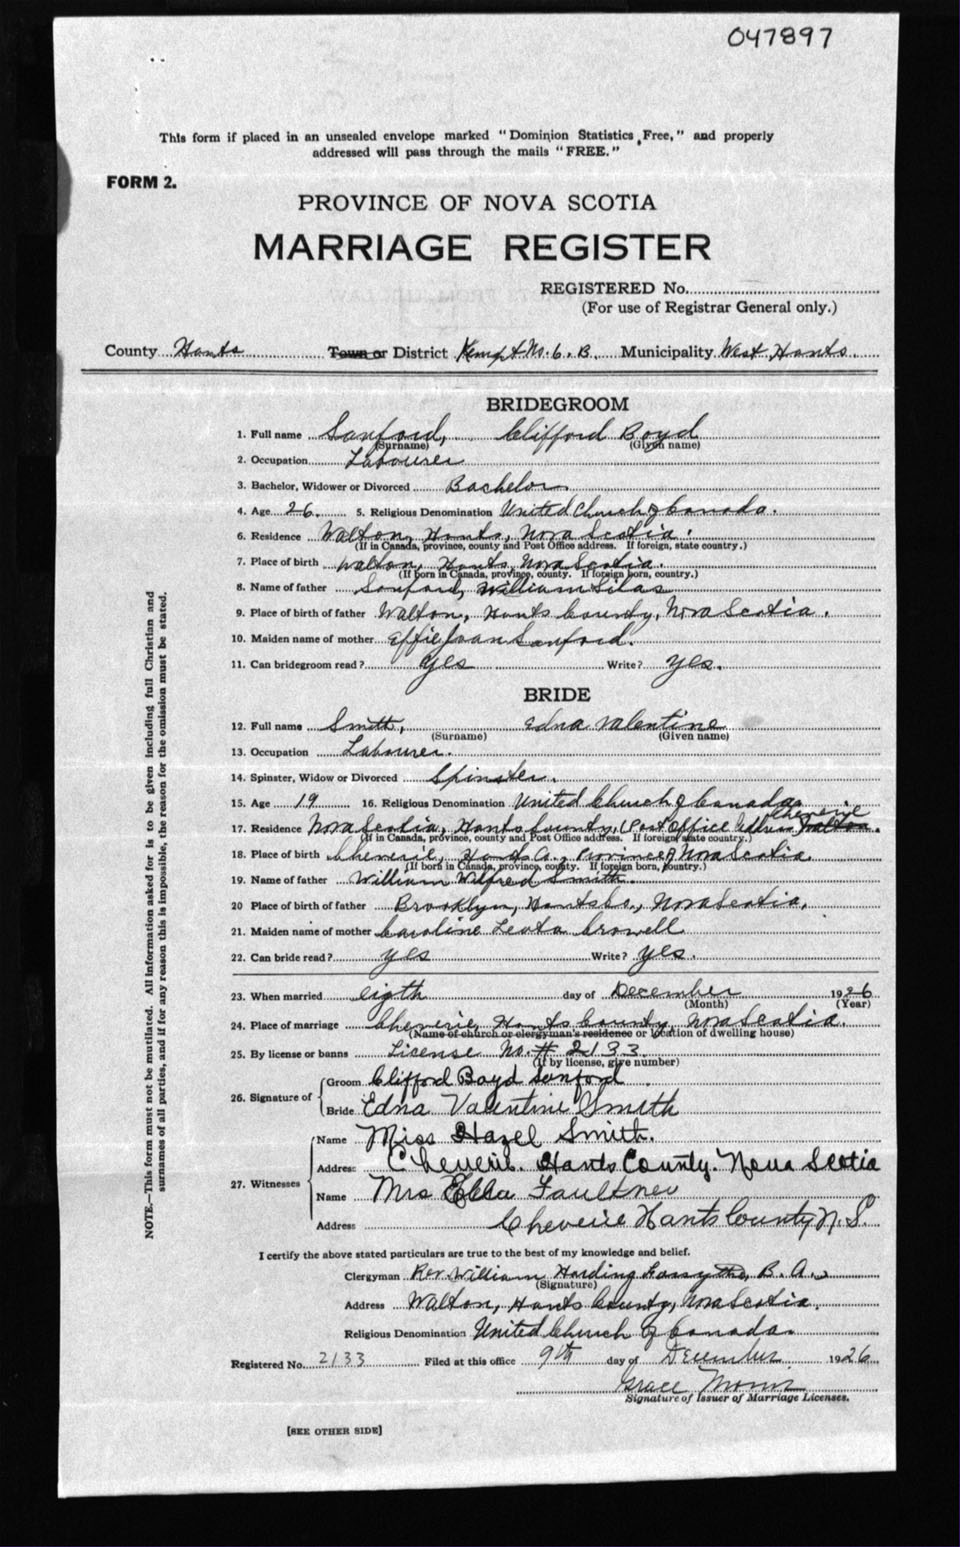 047897
This form if placed in an unsealed envelope marked "Dominion Statistics, Free," and properly
addressed will pass through the mails "FREE."
FORM 2.
PROVINCE OF NOVA SCOTIA
MARRIAGE REGISTER
REGISTERED No.
(For use of Registrar General only.)
County Hants Town or District Kempt No. 6. B. Municipality West Hants
BRIDEGROOM
1. Full name Sanford, Clifford Boyd
(Surname) (Given name)
2. Occupation Labourer
3. Bachelor, Widower or Divorced Bachelor
4. Age 26. 5. Religious Denomination United Church of Canada.
6. Residence Walton, Hants, Nova Scotia.
(If in Canada, province, county and Post Office address. If foreign, state country.)
7. Place of birth Walton, Hants, Nova Scotia.
(If born in Canada, province, county. If foreign born, country.)
8. Name of father Sanford, William Silas
9. Place of birth of father Walton, Hants County, Nova Scotia.
10. Maiden name of mother Effie Joan Sanford.
11. Can bridegroom read? Yes Write? Yes.
BRIDE
12. Full name Smith, Edna Valentine
(Surname) (Given name)
13. Occupation Labourer.
14. Spinster, Widow or Divorced Spinster.
15. Age 19 16. Religious Denomination United Church of Canada
Cheverie
17. Residence Nova Scotia, Hants County, (Post Office Address Walton.
(If in Canada, province, county and Post Office address. If foreign, state country.)
18. Place of birth Cheverie, Hants Province of Nova Scotia.
(If born in Canada, province, county. If foreign born, country.)
19. Name of father William Wilfred Smith.
20 Place of birth of father Brooklyn, Hants Co., Nova Scotia.
21. Maiden name of mother Caroline Leota Crowell
22. Can bride read? Yes Write? Yes.
23. When married eigth day of December 1926
(Month) (Year)
24. Place of marriage Cheverie, Hants County, Nova Scotia.
(Name of church or clergyman's residence or location of dwelling house)
25. By license or banns License No. # 2133
(If by license, give number)
26. Signature of
Groom Clifford Boyd Sanford
Bride Edna Valentine Smith
27. Witnesses
Name Miss Hazel Smith.
Address Cheverie. Hants County. Nova Scotia
Name Mrs Ella Faulkner
Address Cheverie Hants County N.S.
I certify the above stated particulars are true to the best of my knowledge and belief.
Clergyman Rev. William Harding Forsythe, B. A.
(Signature)
Address Walton, Hants County, Nova Scotia.
Religious Denomination United Church of Canada.
Registered No. 2133 Filed at this office 9th day of December 1926
Grace
Signature of Issuer of Marriage Licenses.
[SEE OTHER SIDE]
NOTE.—This form must not be mutilated. All information asked for is to be given including full Christian and
surnames of all parties, and if for any reason this is impossible, the reason for the omission must be stated.